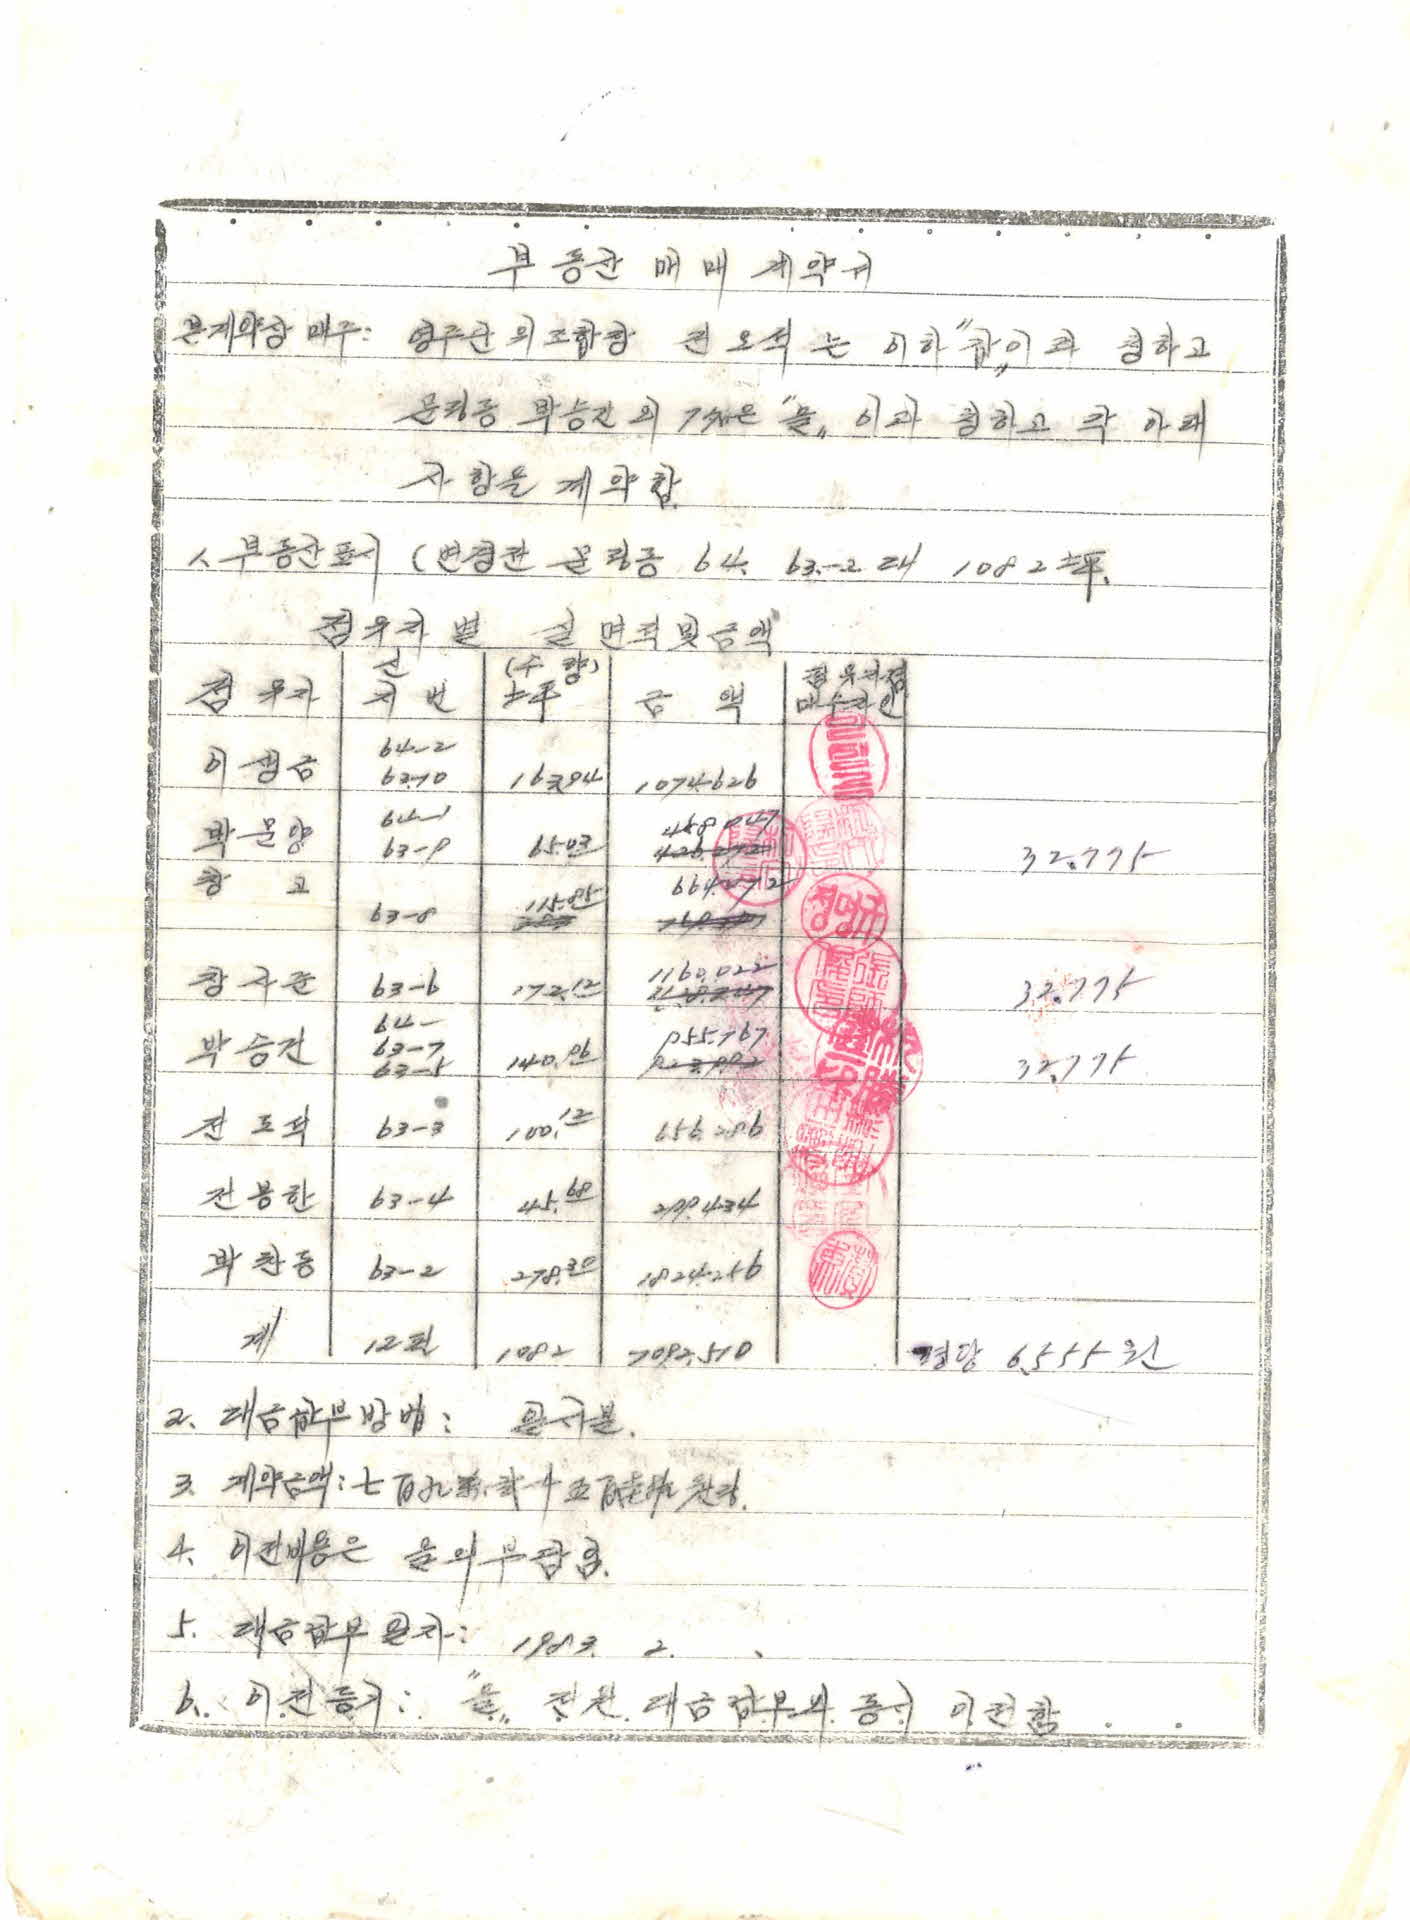 부동산 매매 계약서
본계약상 매주: 영주군 외조합장 전오석는 이하 "갑"이라 칭하고
문정동 박승건 외 7人은 "을" 이라 칭하고 각 아래
사항을 계약함.
1. 부동산표시 (변경전 문정동 64. 63-2 대 1082坪.
점유자별 실면적및금액
점유자 신지번 (수량)坪 금액 점유자겸매수자인
이생금 64-2 63-10 163.94 1074626
박문양 64-1 63-9 65.03 458047 32.775
창고 63-8 115.85 664272
장사준 63-6 172.12 1160.022 32.775
박승건 64- 63-7 63-5 140.96 955.767 32.775
전도식 63-3 100.12 656.286
전봉한 63-4 45.68 299.434
박찬동 63-2 278.30 1824.256
계 12필 1082 7092.510 평당 6,555원
2. 대금납부방법: 일시불.
3. 계약금액: 七百九 五百
4. 이전비용은 을의부담으로.
5. 대금납부일자: 1983. 2. .
6. 이전등기: "을" 대금납부와 동시 이전함